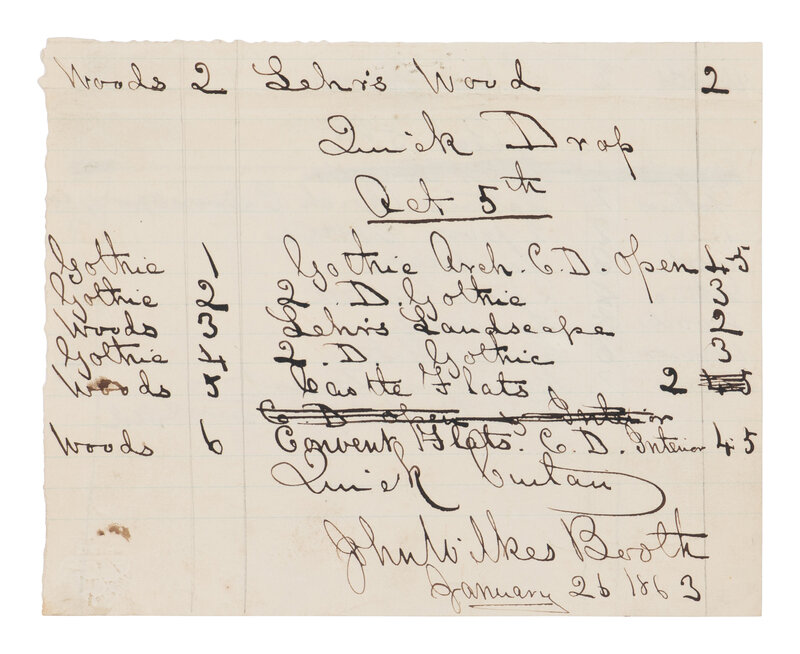 Woods 2 Lehr's Wood 2
Quick Drop
Act 5th
Gothic 1 Gothic Arch. C. D. open 4 5
Gothic 2 2 . D. Gothic 3
Woods 3 Lehr's Landscape 2
Gothic 4 2 . D. Gothic 3
Woods 5 Castle Flats 2
C. D. open Interior
Woods 6 Convent Flats. C. D. Interior 4 5
Quick Curtain
John Wilkes Booth
January 26 1863